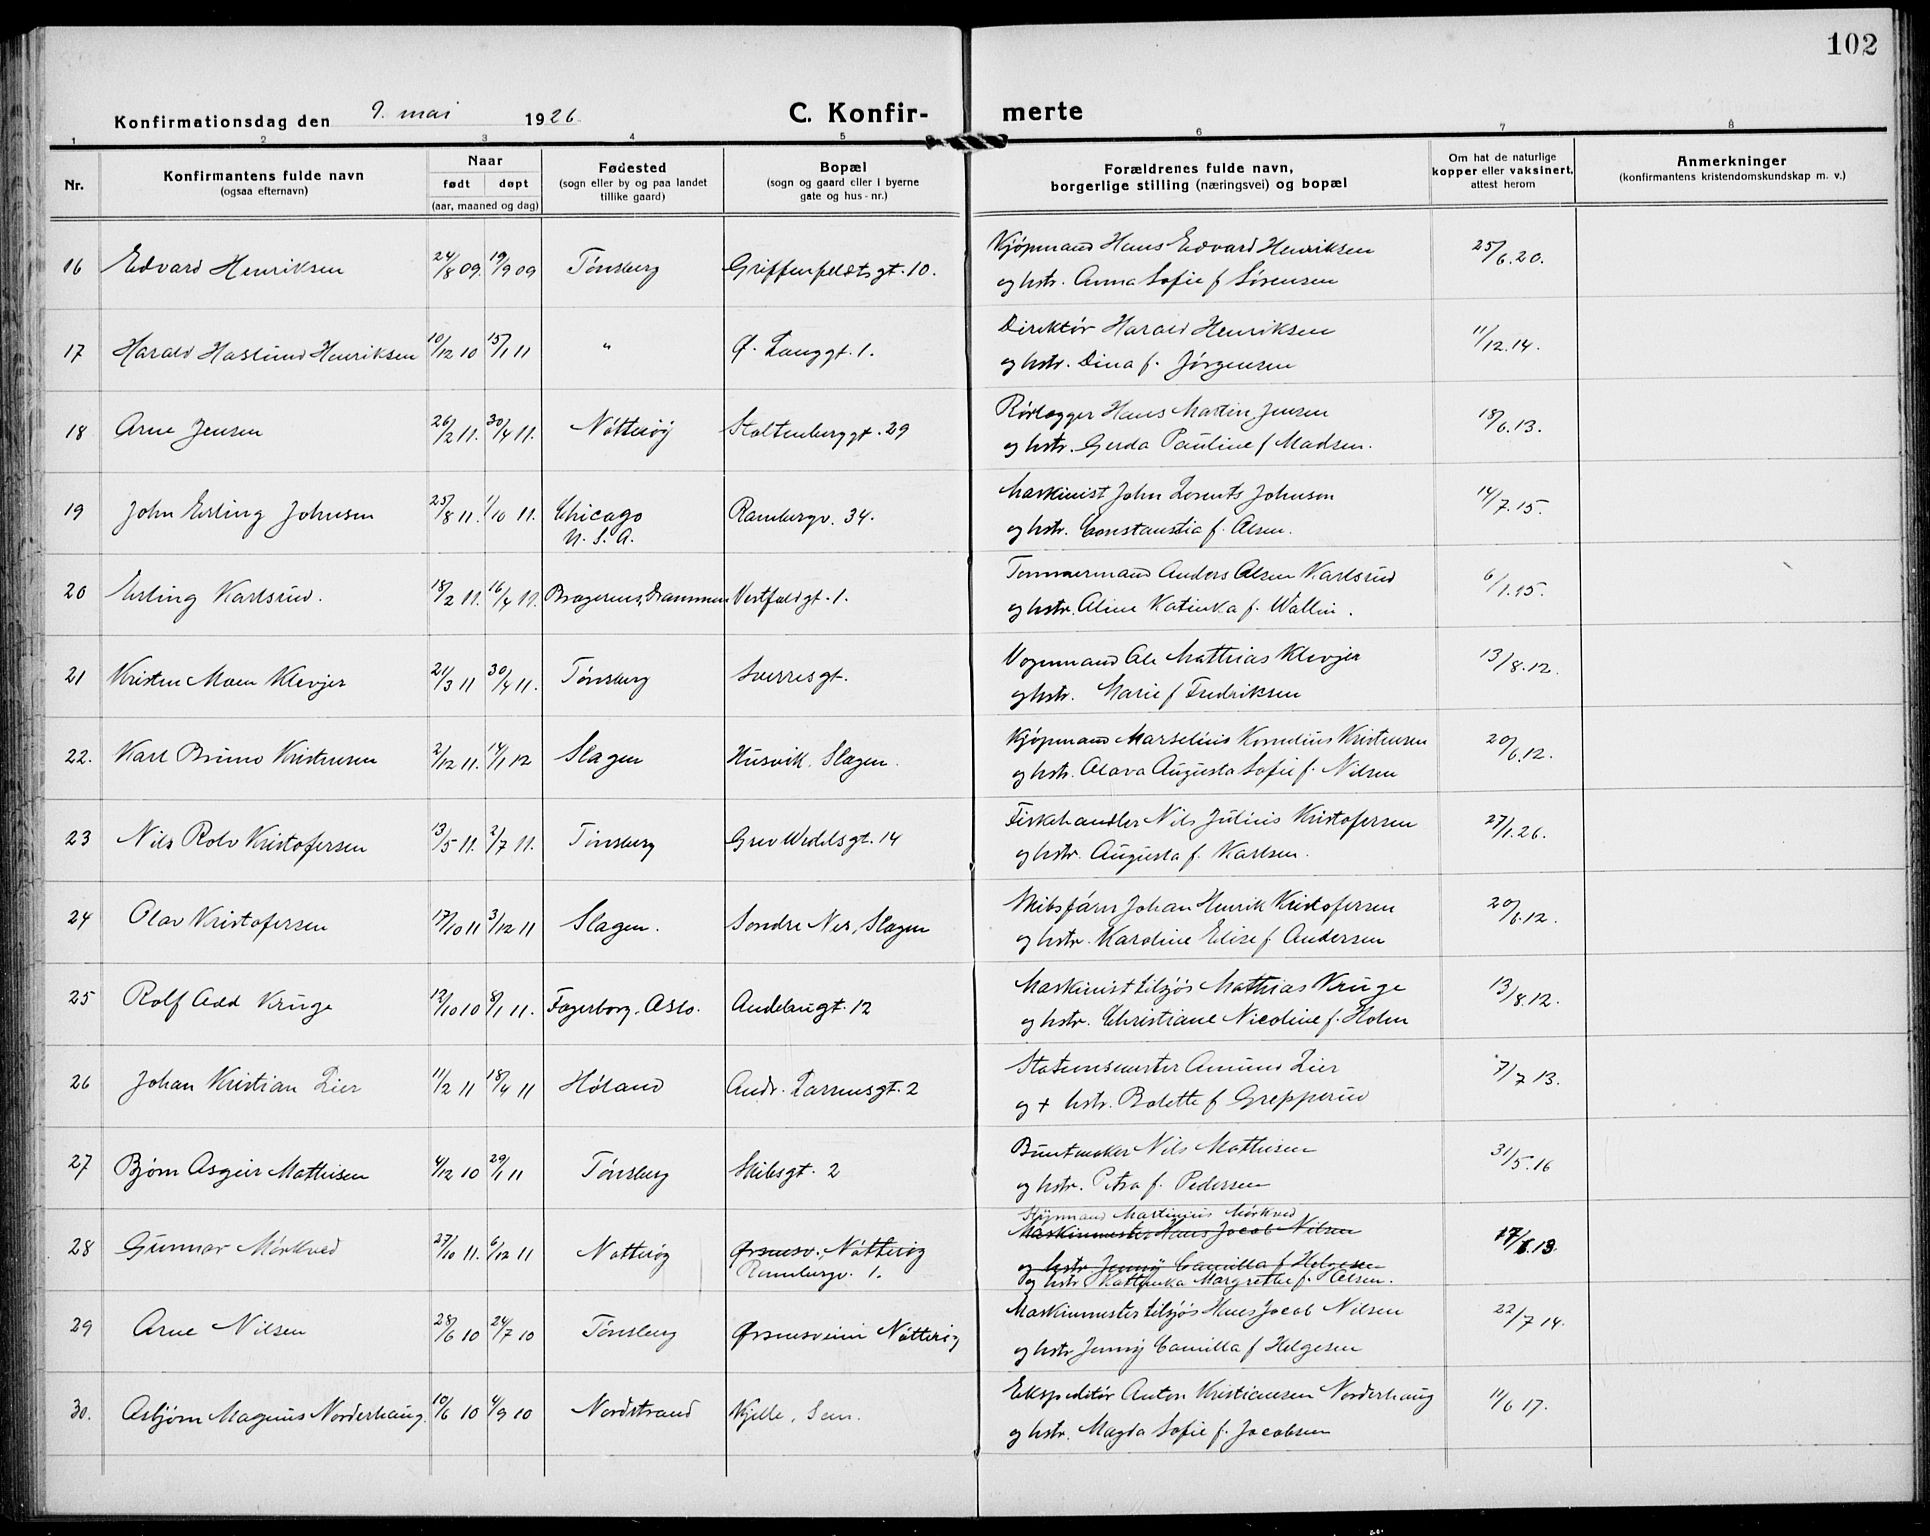 102
Konfirmationsdag den 9. mai 1926
C. Konfir- merte
1 2 3 4 5 6 7 8
Nr.
Konfirmantens fulde navn
(ogsaa efternavn)
Naar
født døpt
(aar, maaned og dag)
Fødested
(sogn eller by og paa landet
tillike gaard)
Bopæl
(sogn og gaard eller i byerne
gate og hus-nr.)
Forældrenes fulde navn,
borgerlige stilling (næringsvei) og bopæl
Om hat de naturlige
kopper eller vaksinert,
attest herom
Anmerkninger
(konfirmantens kristendomskundskap m. v.)
16 Edvard Henriksen 24/8 09. 19/9 09 Tønsberg Griffenfeldtsgt. 10. Kjøpmand Hans Edvard Henriksen 25/6.20.
og hstr. Anna Sofie f Sørensen
17 Harald Haslund Henriksen 10/12 10 15/1 11 " Ø. Langgt. 1. Direktør Harald Henriksen 11/12.14.
og hstr. Dina f. Jørgensen
18 Arne Jensen 26/2 11. 30/4 11. Nøtterøy Stoltenberggt. 29 Rørlægger Hans Martin Jensen 18/6.13.
og hstr. Gerda Pauline f Madsen.
19 John Erling Johnsen 25/8 11. 1/10 11. Chicago Rambergv. 34. Maskinist John Lorents Johnson 14/7.15.
U. S. A. og hstr. Constanstia f. Olsen.
20 Erling Karlsrud. 18/2 11. 16/4 11. Bragernes, Drammen Vestfoldgt. 1. Tømmermand Anders Olsen Karlsrud 6/1.15.
og hstr. Aline Katinka f. Wallin.
21 Kristen Moen Klevjer 21/3 11 30/4 11. Tønsberg Sverresgt. Vognmand Ole Mathias Klevjer 13/8.12.
og hstr. Marie f Fredriksen
22. Karl Bruno Kristensen 2/12 11. 14/1 12 Slagen Husvik, Slagen. Kjøpmand Marselius Kornelius Kristensen 20/6.12.
og hstr. Olava Augusta Sofie f. Nilsen
23 Nils Rolv Kristofersen 13/5 11. 2/7 11. Tønsberg Grev Wedelsgt. 14 Fiskehandler Nils Julius Kristofersen 27/1.26.
og hstr. Augusta f. Karlsen.
24 Olav Kristofersen 17/10 11 3/12 11 Slagen. Søndre Nes, Slagen Skibsfører Johan Henrik Kristofersen 20/6.12.
og hstr. Karoline Elise f. Andersen
25 Rolf Odd Kruge 12/10 10 8/1 11. Fagerborg, Oslo. Andebugt. 12 Maskinist tilsjøs Mathias Kruge 13/8.12.
og hstr. Christiane Nicoline f. Holm
26 Johan Kristian Lier 11/2 11 18/4 11 Høland Andr. Larsensgt. 2 Stationsmester Amund Lier 7/7 13.
og + hstr. Bolette f Grepperud
27 Bjørn Asgeir Mathisen 4/12 10 29/1 11 Tønsberg Skibsgt. 2 Buntmaker Nils Mathisen 31/5.16
og hstr. Petra f. Pedersen
Styrmand Martinius Mørkved
28 Gunnar Mørkved 27/10 11. 6/12 11 Nøtterøy Ørsnesv., Nøtterøy Maskinmester Hans Jacob Nilsen
Rambergv. 1. og hstr. Jenny Camilla f Helgesen
og hstr Kathinka Margrethe f. Olsen.
29 Arne Nilsen 28/6 10 24/7 10 Tønsberg Ørsnesveien Nøtterøy Maskinmester tilsjøs Hans Jacob Nilsen 22/7 14.
og hstr Jenny Camilla f Helgesen
30. Asbjørn Magnus Norderhaug. 10/6 10 4/9 10 Nordstrand Kjelle, Sem. Ekspeditør Anton Kristiansen Norderhaug 11/6 17.
og hstr. Magda Sofie f. Jacobsen